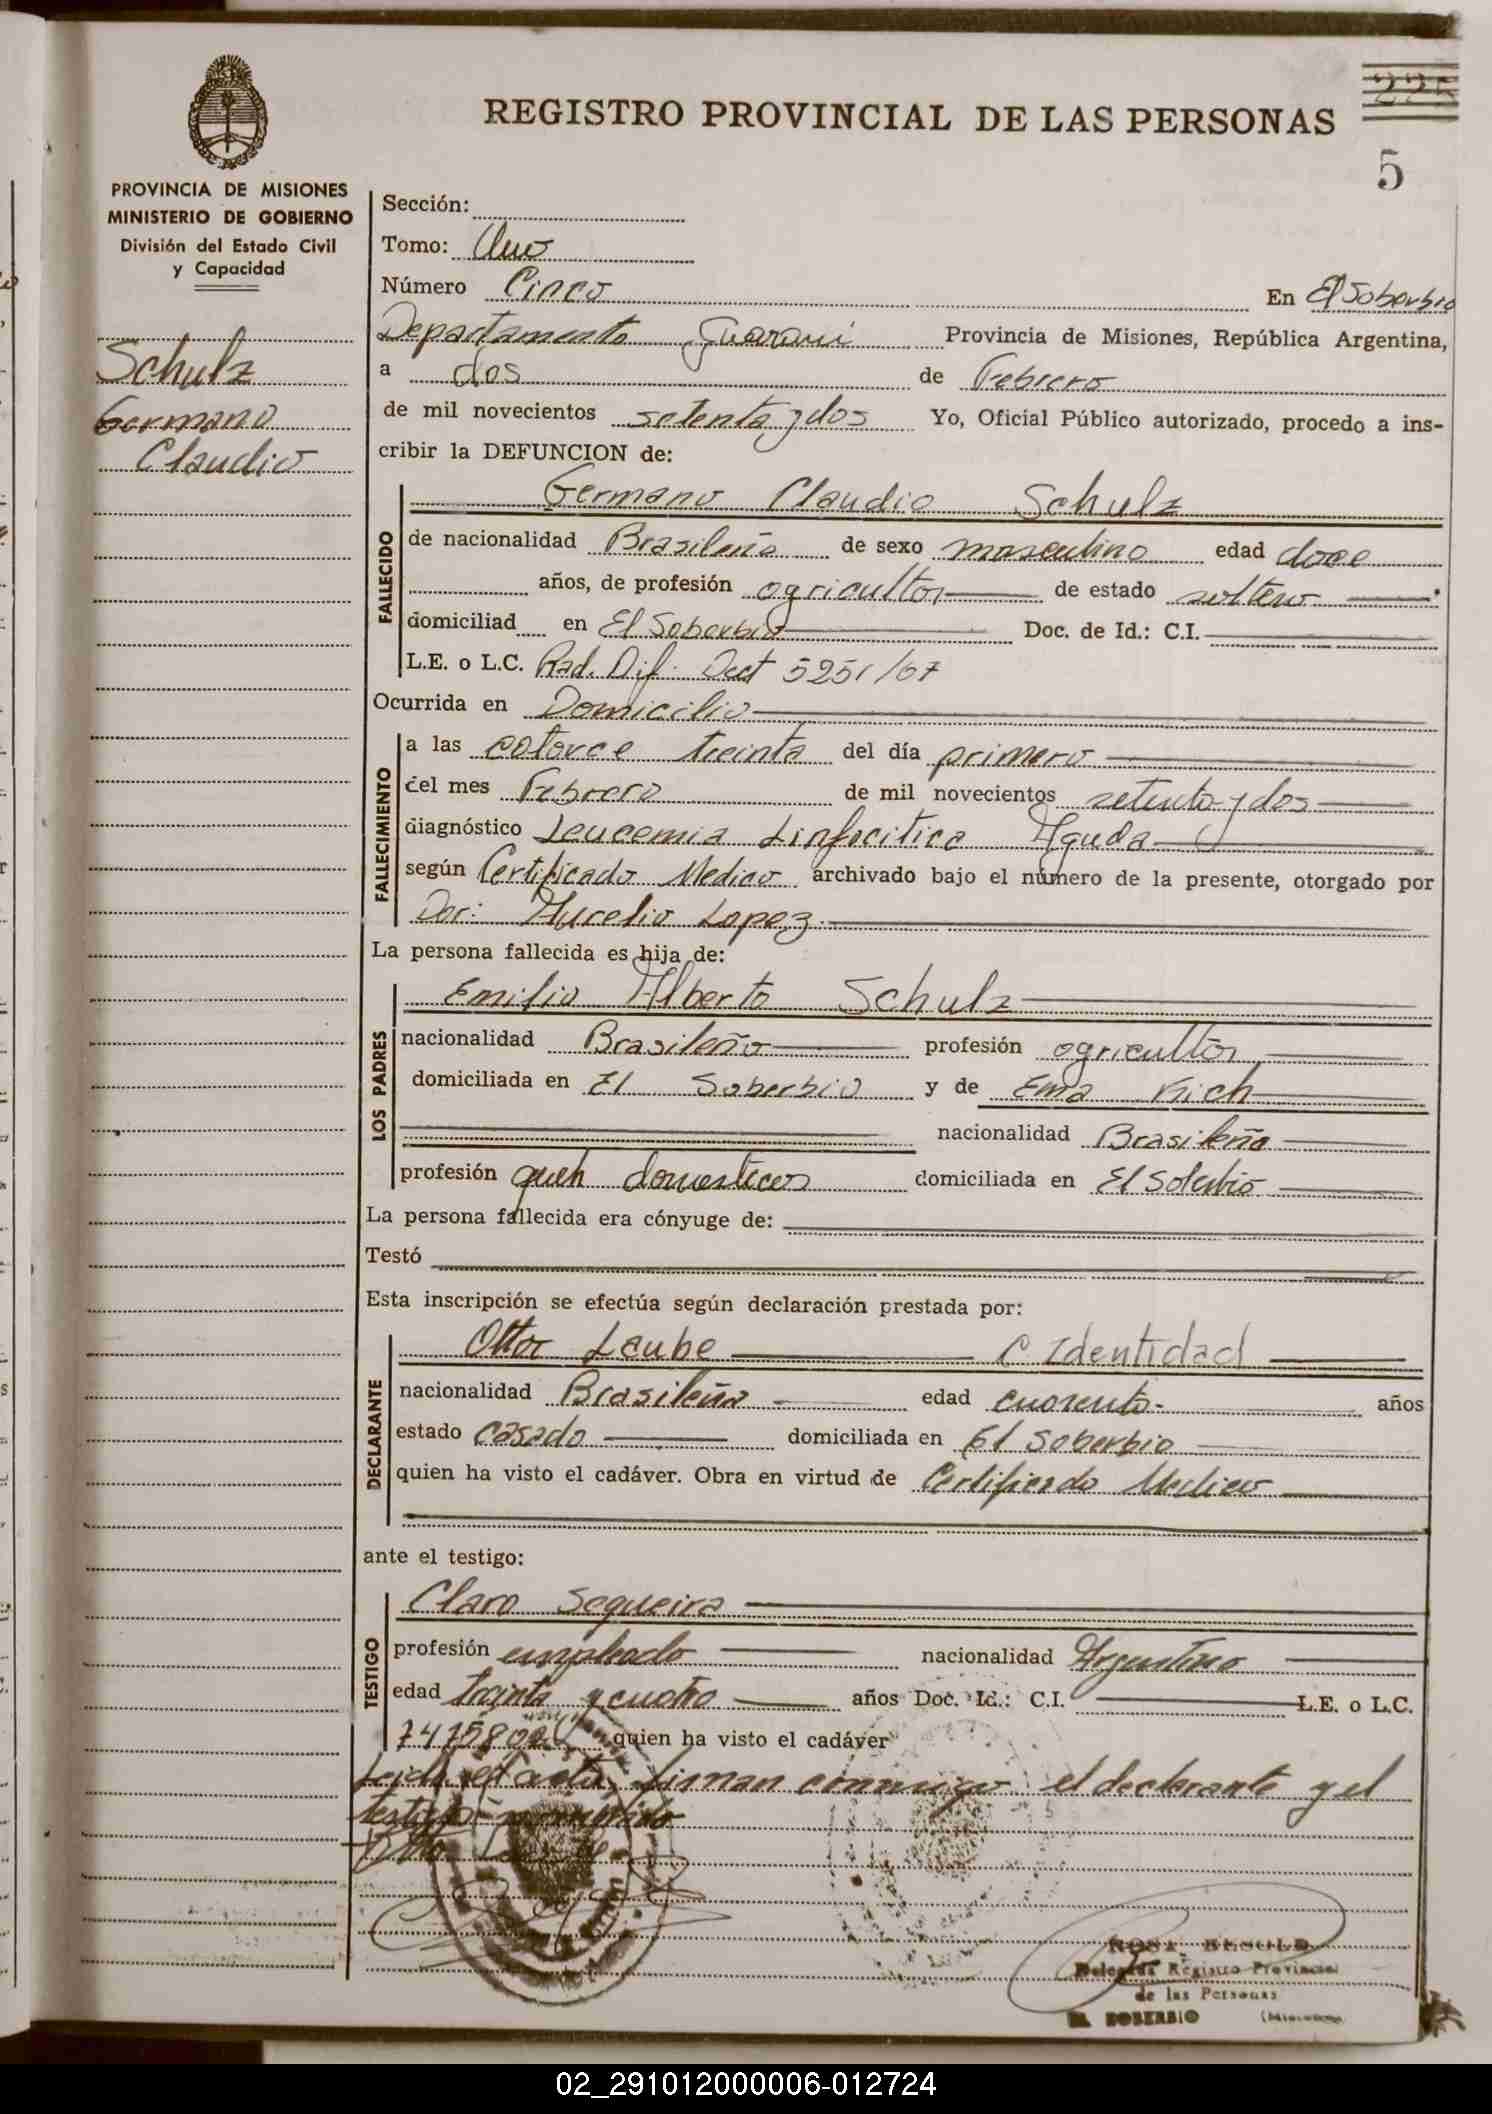 225
REGISTRO PROVINCIAL DE LAS PERSONAS
5
PROVINCIA DE MISIONES
MINISTERIO DE GOBIERNO
División del Estado Civil
y Capacidad
Schulz
Germano
Claudio
Sección:
Tomo: Uno
Número Cinco En El Soberbio
Departamento Guaraní Provincia de Misiones, República Argentina,
a dos de Febrero
de mil novecientos setenta y dos Yo, Oficial Público autorizado, procedo a ins-
cribir la DEFUNCION de:
Germano Claudio Schulz
FALLECIDO
de nacionalidad Brasileña de sexo masculino edad doce
años, de profesión agricultor de estado soltero
domiciliad en El Soberbio Doc. de Id.: C.I.
L.E. o L.C. Rad. Dif. Dect 5251/67
Ocurrida en Domicilio
FALLECIMIENTO
a las catorce treinta del día primero
del mes Febrero de mil novecientos setenta y dos
diagnóstico Leucemia Linfocitica Aguda
según Certificado Medico archivado bajo el número de la presente, otorgado por
Dor: Aurelio Lopez
La persona fallecida es hija de:
LOS PADRES
Emilio Alberto Schulz
nacionalidad Brasileño profesión agricultor
domiciliada en El Soberbio y de Ema Kich
nacionalidad Brasileña
profesión queh domesticos domiciliada en El Soberbio
La persona fallecida era cónyuge de:
Testó
Esta inscripción se efectúa según declaración prestada por:
DECLARANTE
Otto Leube C Identidad
nacionalidad Brasileña edad cuarenta años
estado Casado domiciliada en El Soberbio
quien ha visto el cadáver. Obra en virtud de Certificado Medico
ante el testigo:
TESTIGO
Claro Sequeira
profesión empleado nacionalidad Argentino
edad treinta y cuatro años Doc. Id.: C.I. L.E. o L.C.
7475802 quien ha visto el cadáver
Leida el acta, firman conmigo el declarante y el
testigo
Otto
ROSA BESOLD
Delegada Registro Provincial
de las Personas
EL SOBERBIO (Misiones)
02_291012000006-012724